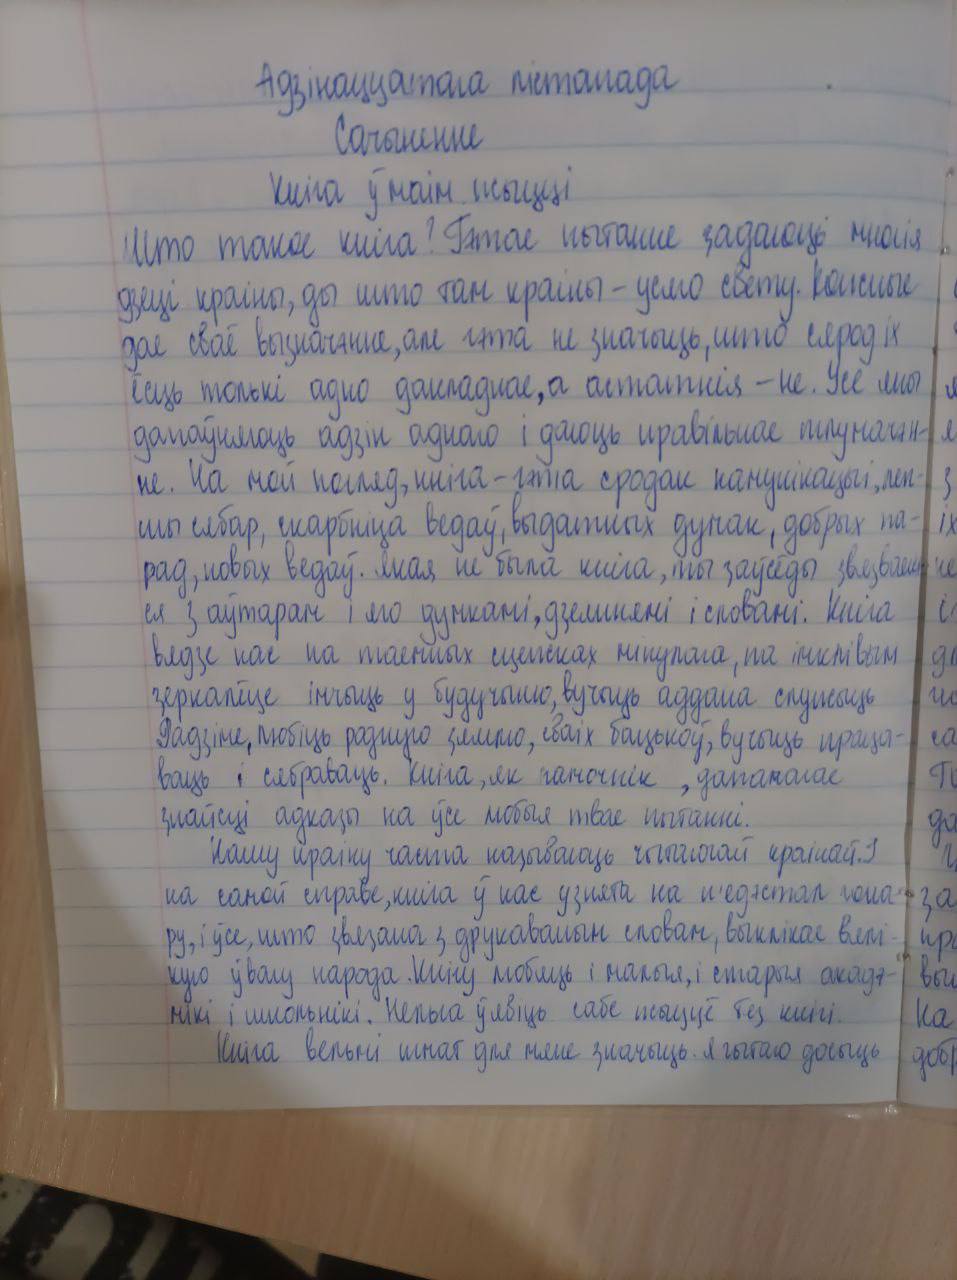 Адзінаццатага лістапада
Сачыненне
Кніга ў маім жыцці
Што такое кніга? Гэтае пытанне задаюць многія
дзеці краіны, ды што там краіны – усяго свету. Кожные
дае сваё вызначэнне, але гэта не значыць, што сярод іх
ёсць толькі адно дакладнае, а астатнія – не. Усе яны
дапаўняюць адзін аднаго і даюць правільнае тлумачэн-
не. На мой погляд, кніга – гэта сродак камунікацыі, леп-
шы сябар, скарбніца ведаў, выдатных думак, добрых па-
рад, новых ведаў. Якая не была кніга, ты заўсёды звязваеш-
ся з аўтарам і яго думкамі, дзеяннямі і словамі. Кніга
вядзе нас па таемных сцежках мінулага, па імклівым
зеркалце імчыць у будучыню, вучыць аддана служыць
Радзіме, любіць родную зямлю, сваіх бацькоў, вучыць праца-
ваць і сябраваць. Кніга, як памочнік, дапамагае
знайсці адказы на ўсе любыя твае пытанні.
Нашу краіну часта называюць чытаючай краінай. І
на самой справе, кніга ў нас узнята на п'едэстал гона-
ру, і ўсе, што звязана з друкаваным словам, выклікае вялі-
кую ўвагу народа. Кнігу любяць і малыя, і старыя акадэ-
мікі і школьнікі. Нельга ўявіць сабе жыццё без кнігі.
Кніга вельмі шмат для мяне значыць. Я чытаю досыць